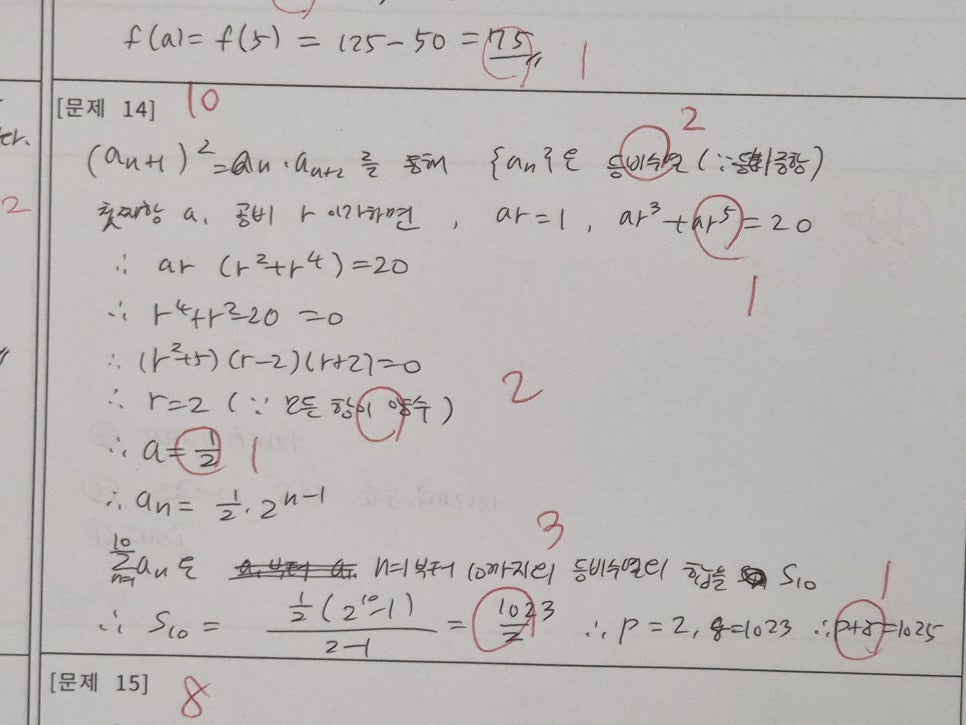 f(a)= f(5) = 125-50 = 75 1
[문제 14] 10
ter.
2
(aₙ₊₁)² = aₙ·aₙ₊₂ 를 통해 {aₙ}은 등비수열(∵등비중항)
2
첫째항 a, 공비 r 이라하면, ar=1, ar³+ar⁵=20
1
∴ ar (r²+r⁴)=20
∴ r⁴+r²-20 =0
∴ (r²+5)(r-2)(r+2)=0
∴ r=2 (∵ 모든 항이 양수) 2
∴ a=1/2 1
∴ aₙ= 1/2·2ⁿ⁻¹
3
∑ₙ₌₁¹⁰ aₙ은 n=1부터 10까지의 등비수열의 합을 S₁₀ 1
∴ S₁₀ = 1/2(2¹⁰-1)/2-1 = 1023/2 ∴ p=2, q=1023 ∴p+q=1025
[문제 15] 8